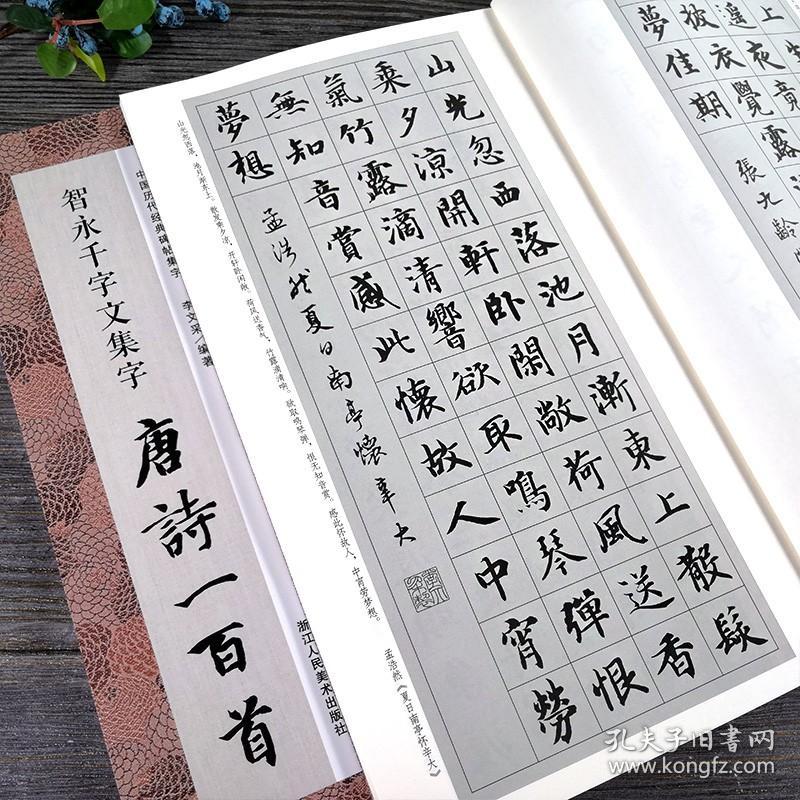 山光忽西落池月漸東上散髮
乘夕涼開軒卧閑敞荷風送香
氣竹露滴清響欲取鳴琴彈恨
無知音賞感此懷故人中宵勞
夢想
孟浩然夏日南亭懷辛大
山光忽西落，池月渐东上。散发乘夕凉，开轩卧闲敞。荷风送香气，竹露滴清响。欲取鸣琴弹，恨无知音赏。感此怀故人，中宵劳梦想。
孟浩然《夏日南亭怀辛大》
上生
遥夜竟
披衣覺露
夢佳期
張九齡
中国历代经典碑帖集字
李文采/编著
浙江人民美术出版社
智永千字文集字
唐詩一百首
孔夫子旧书网
www.kongfz.com